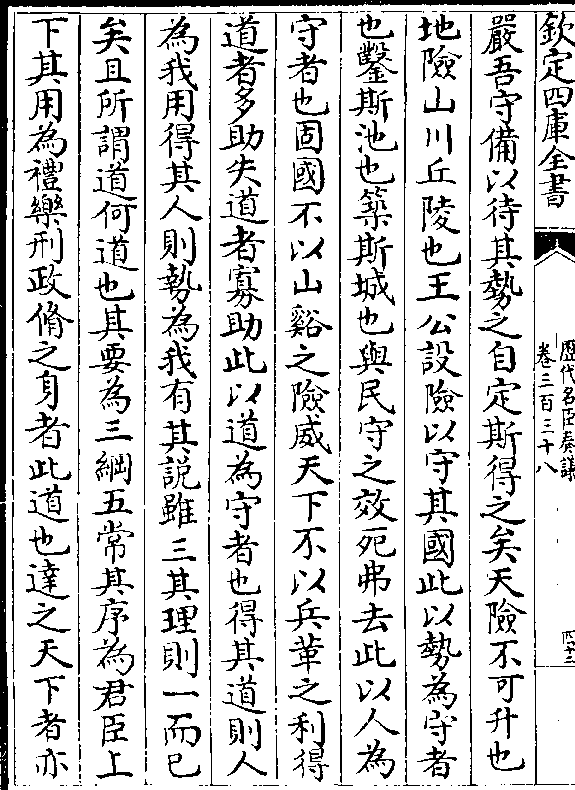 欽定四庫全書
歷代名臣奏議
卷三百三十八
四十二
嚴吾守備以待其勢之自定斯得之矣天險不可升也
地險山川丘陵也王公設險以守其國此以勢為守者
也鑿斯池也築斯城也與民守之效死弗去此以人為
守者也固國不以山谿之險威天下不以兵革之利得
道者多助失道者寡助此以道為守者也得其道則人
為我用得其人則勢為我有其說雖三其理則一而已
矣且所謂道何道也其要為三綱五常其序為君臣上
下其用為禮樂刑政脩之身者此道也達之天下者亦